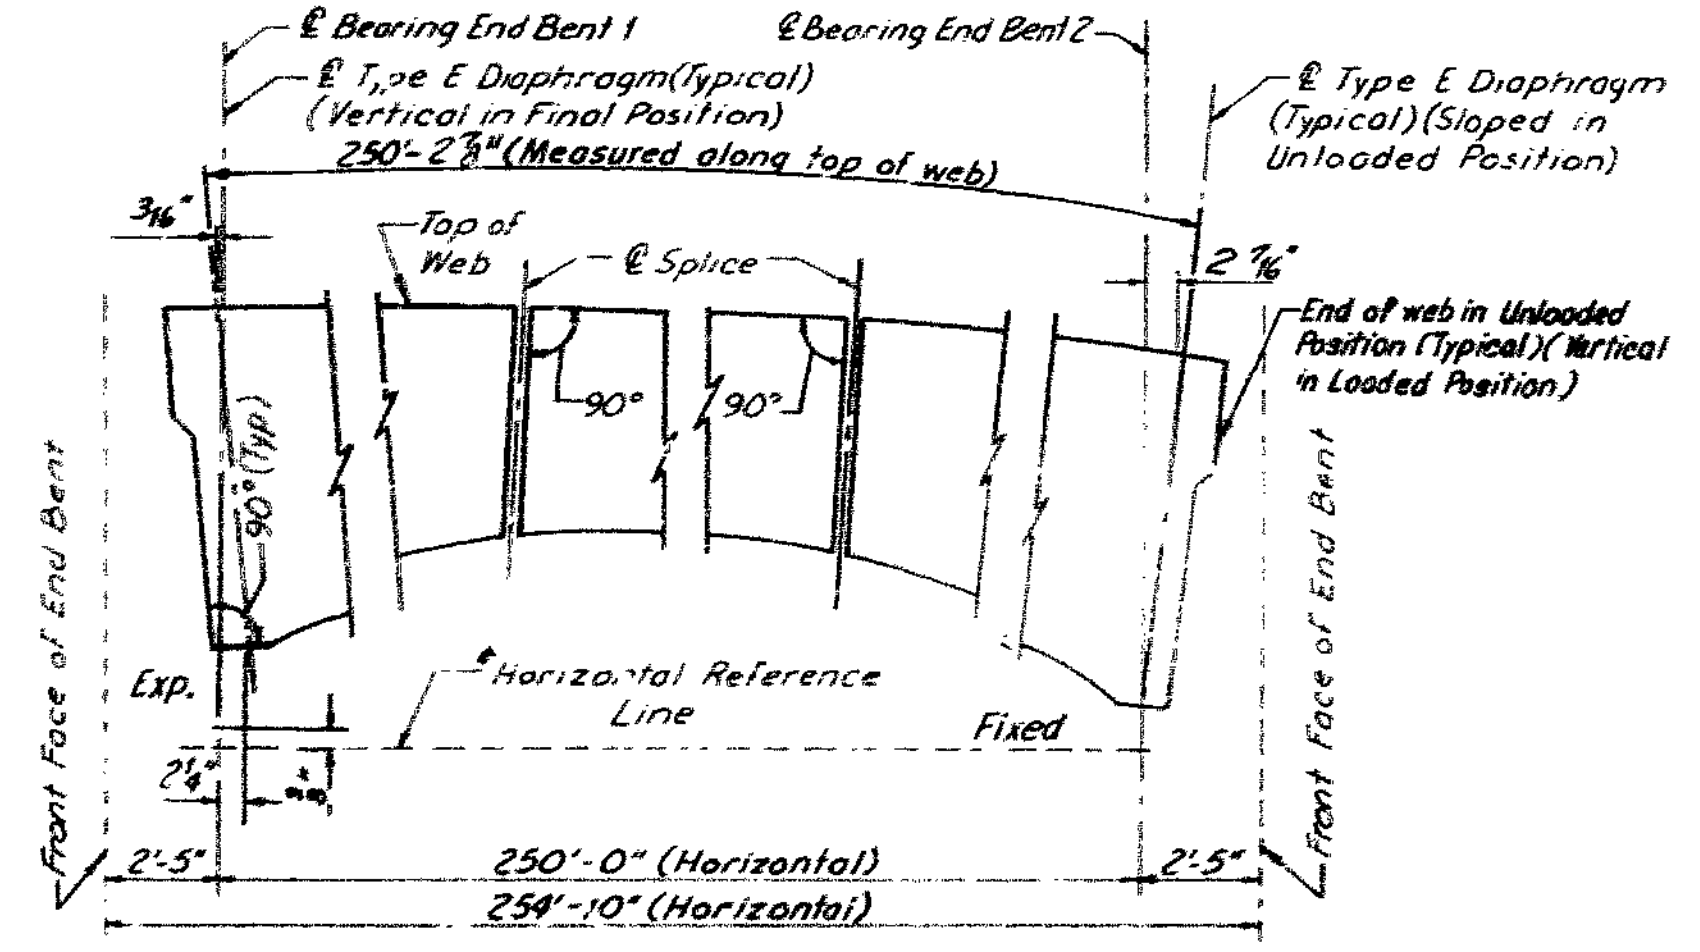 ℄ Bearing End Bent 1
℄ Bearing End Bent 2
℄ Type E Diaphragm (Typical)
(Vertical in Final Position)
℄ Type E Diaphragm
(Typical) (Sloped in
Unloaded Position)
250'-2 7/8" (Measured along top of web)
3/16"
Top of
Web
℄ Splice
2 7/16"
End of web in Unloaded
Position (Typical) (Vertical
in Loaded Position)
90°
90°
90° (Typ.)
Front Face of End Bent
Front Face of End Bent
Exp.
* Horizontal Reference
Line
Fixed
2 1/4"
2'-5"
250'-0" (Horizontal)
2'-5"
254'-10" (Horizontal)